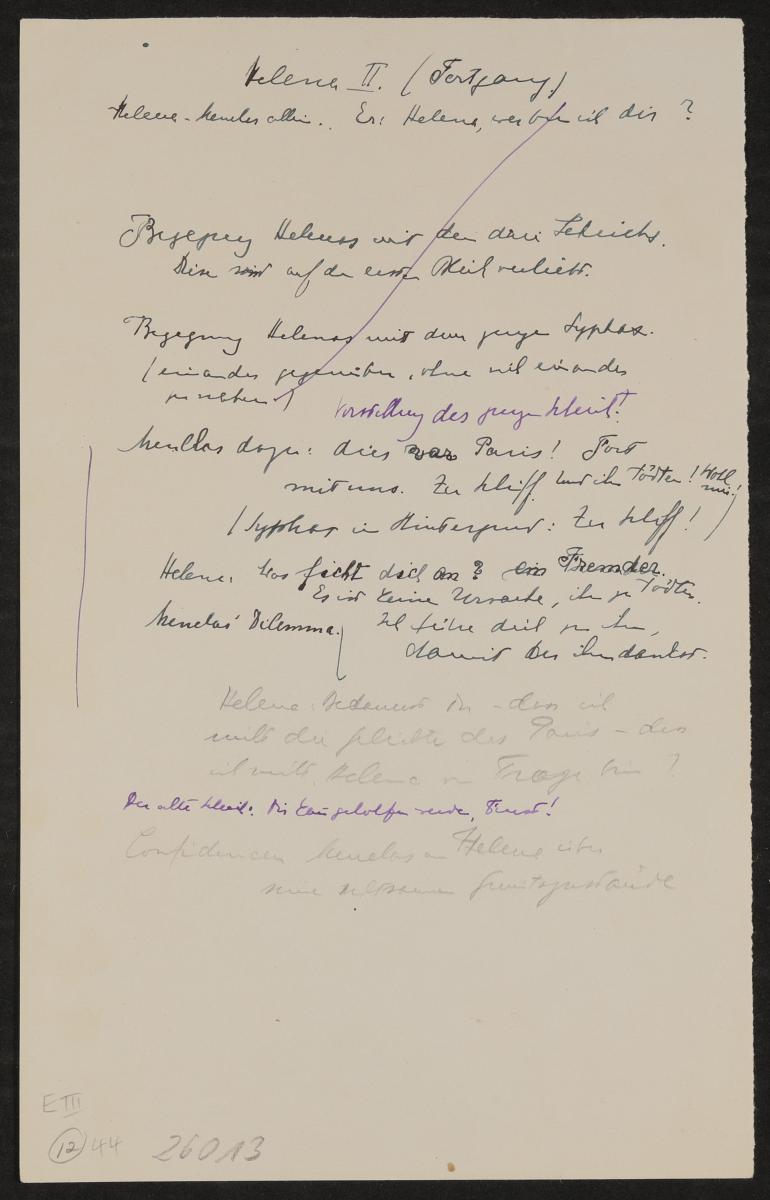 Helena II. (Fortgang)
Helena - Menelas allein. Er: Helena, wer bin ich dir ?
Begegnung Helenas mit den drei Scheichs.
Diese sind auf den ersten Blick verliebt.
Begegnung Helenas mit dem jungen Syphax.
(einander gegenüber, ohne sich einander
zu nähern)
Vorstellung des jungen Scheich!
Menelas dazu: dies war Paris! Fort
mit uns. Zu Schiff. Und ihn tödten! Hilf
mir!
(Syphax im Hintergrund: Zu Schiff! )
Helena: Was ficht dich an? ein Fremder.
Es ist keine Ursache, ihn zu tödten.
Menelas' Dilemma.
Ich führe dich zu ihm,
damit du ihm dankst.
Helena: Bedauerst du - dass ich
nicht die Geliebte des Paris - dass
ich nicht Helena von Troja bin ?
Der alte Scheich: Dir kann geholfen werden, Fürst!
Confidencen Menelas an Helena über
seine seltsamen Gemütszustände
E III
12 44 26013